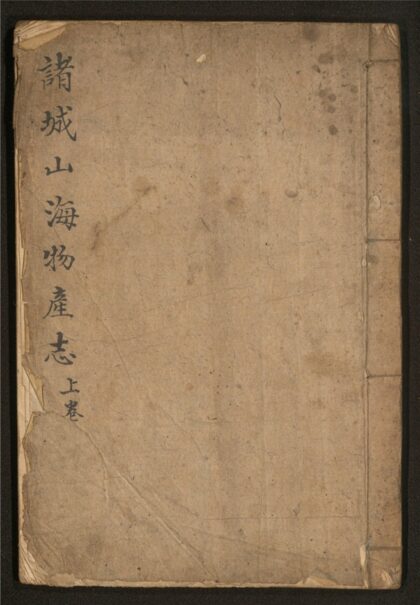 諸城山海物產志上卷